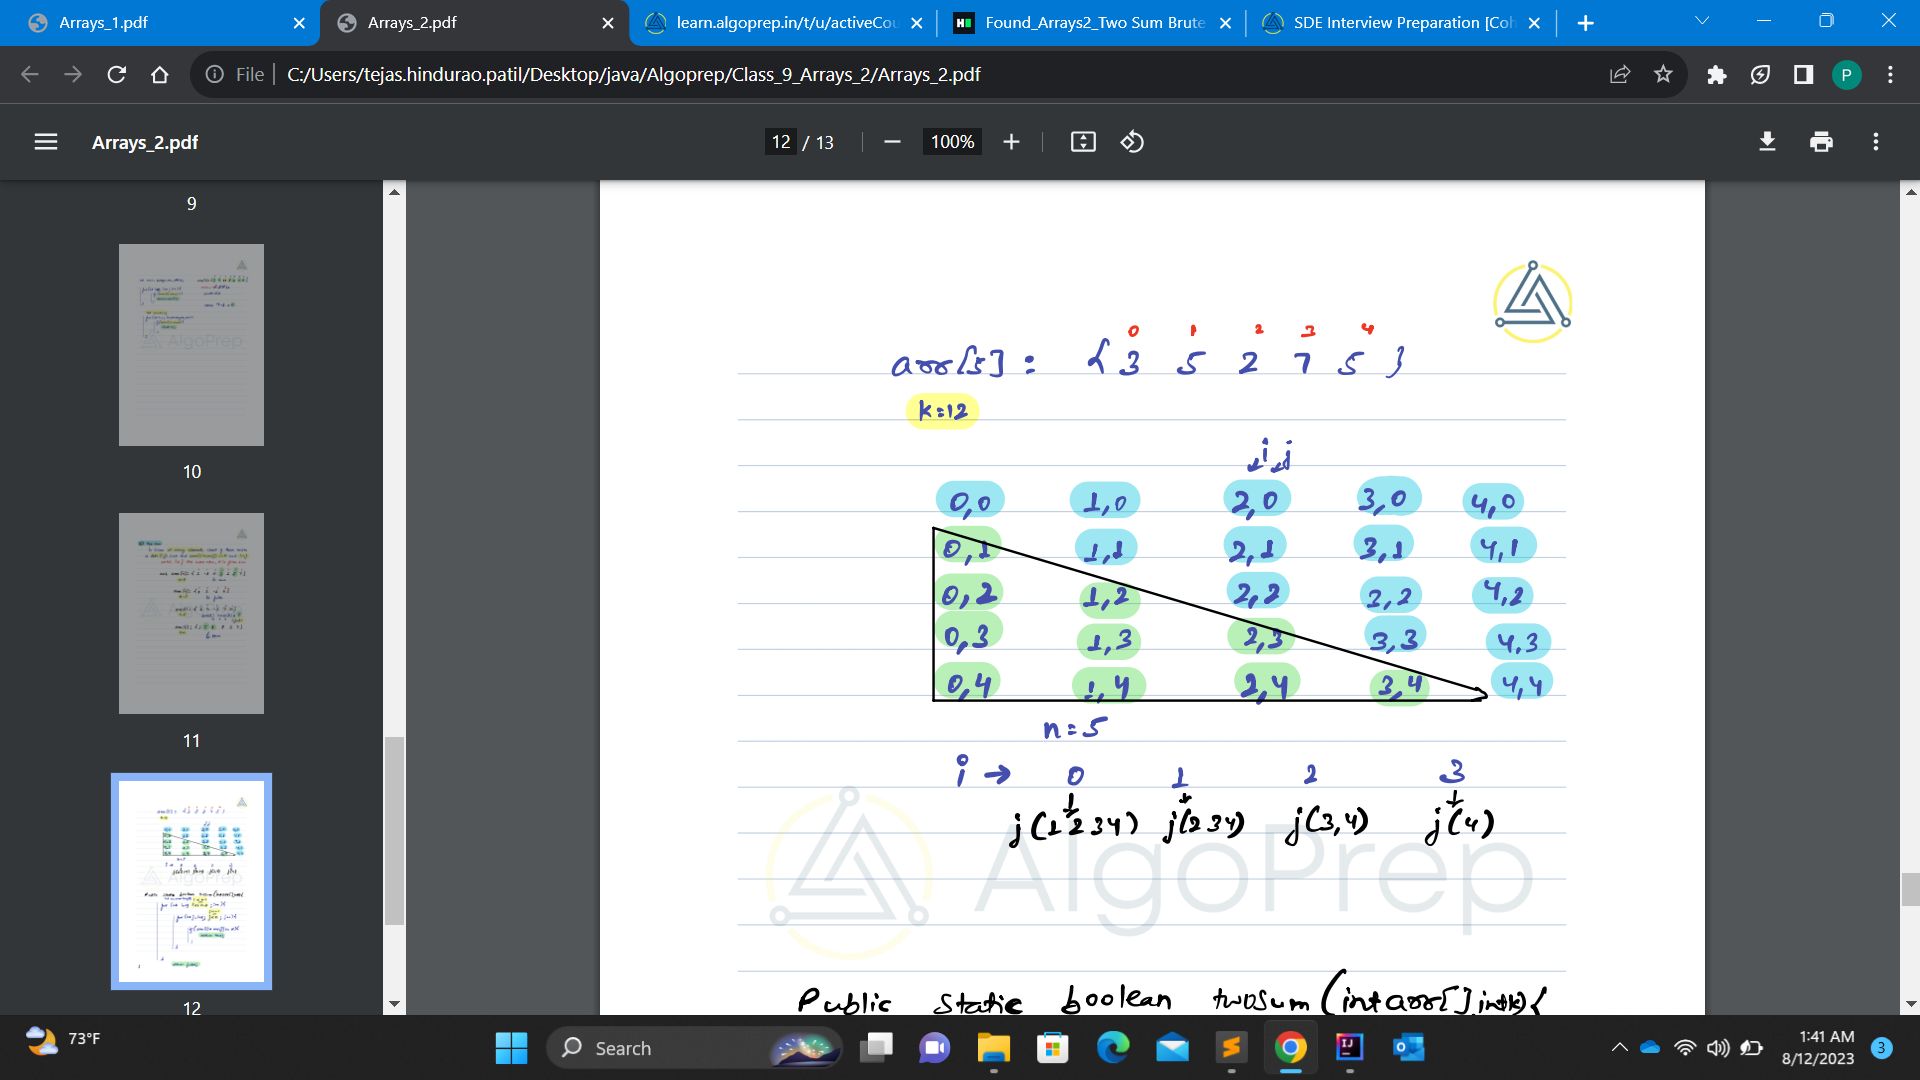 Arrays_1.pdf
Arrays_2.pdf
learn.algoprep.in/t/u/activeCou
Found_Arrays2_Two Sum Brute
SDE Interview Preparation [Coh
File
C:/Users/tejas.hindurao.patil/Desktop/java/Algoprep/Class_9_Arrays_2/Arrays_2.pdf
P
Arrays_2.pdf
12 / 13
100%
9
10
11
12
0 1 2 3 4
arr[5] : { 3 5 2 7 5 }
k=12
i j
0,0 1,0 2,0 3,0 4,0
0,1 1,1 2,1 3,1 4,1
0,2 1,2 2,2 3,2 4,2
0,3 1,3 2,3 3,3 4,3
0,4 1,4 2,4 3,4 4,4
n=5
i → 0 1 2 3
j(1 2 3 4) j(2 3 4) j(3,4) j(4)
AlgoPrep
Public static boolean twoSum(int arr[], int k){
73°F
Search
1:41 AM
8/12/2023
3